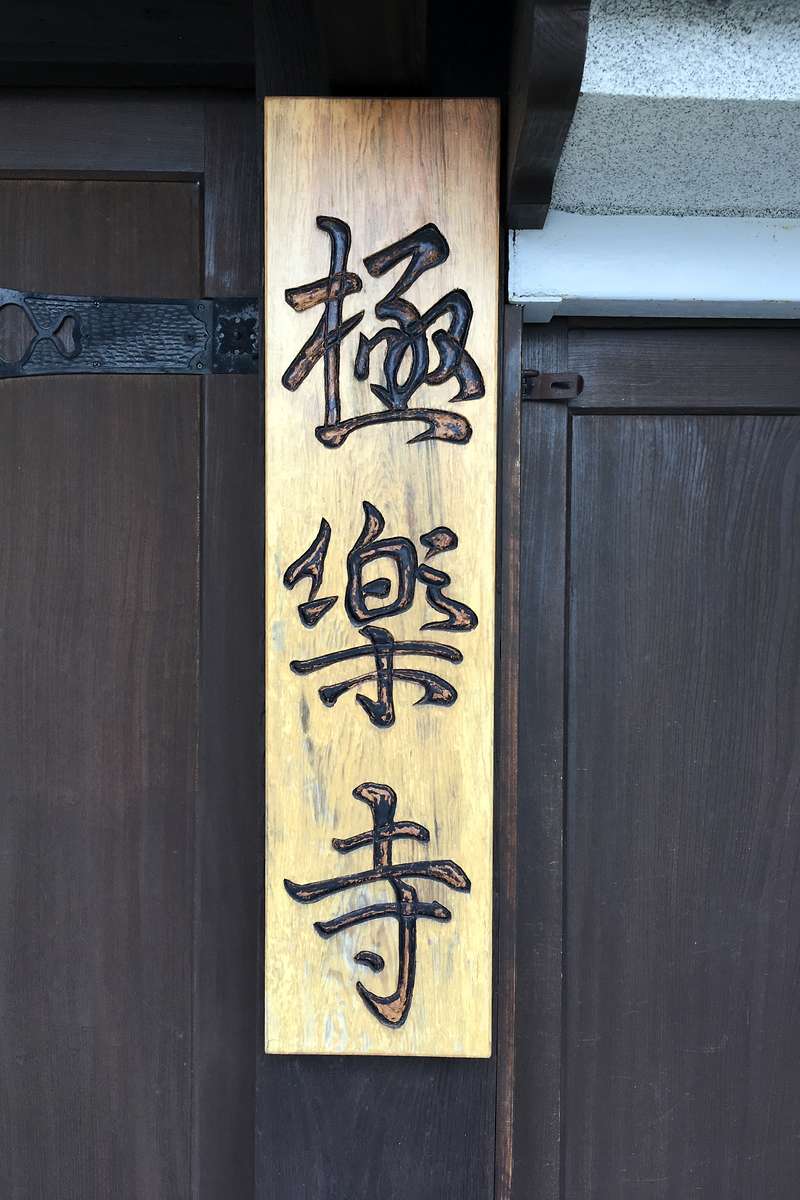 極樂寺